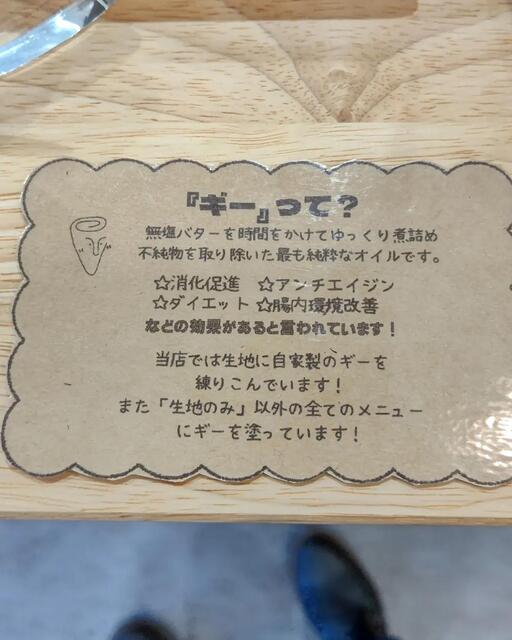 『ギー』って？
無塩バターを時間をかけてゆっくり煮詰め
不純物を取り除いた最も純粋なオイルです。
☆消化促進 ☆アンチエイジン
☆ダイエット ☆腸内環境改善
などの効果があると言われています！
当店では生地に自家製のギーを
練りこんでいます！
また「生地のみ」以外の全てのメニュー
にギーを塗っています！